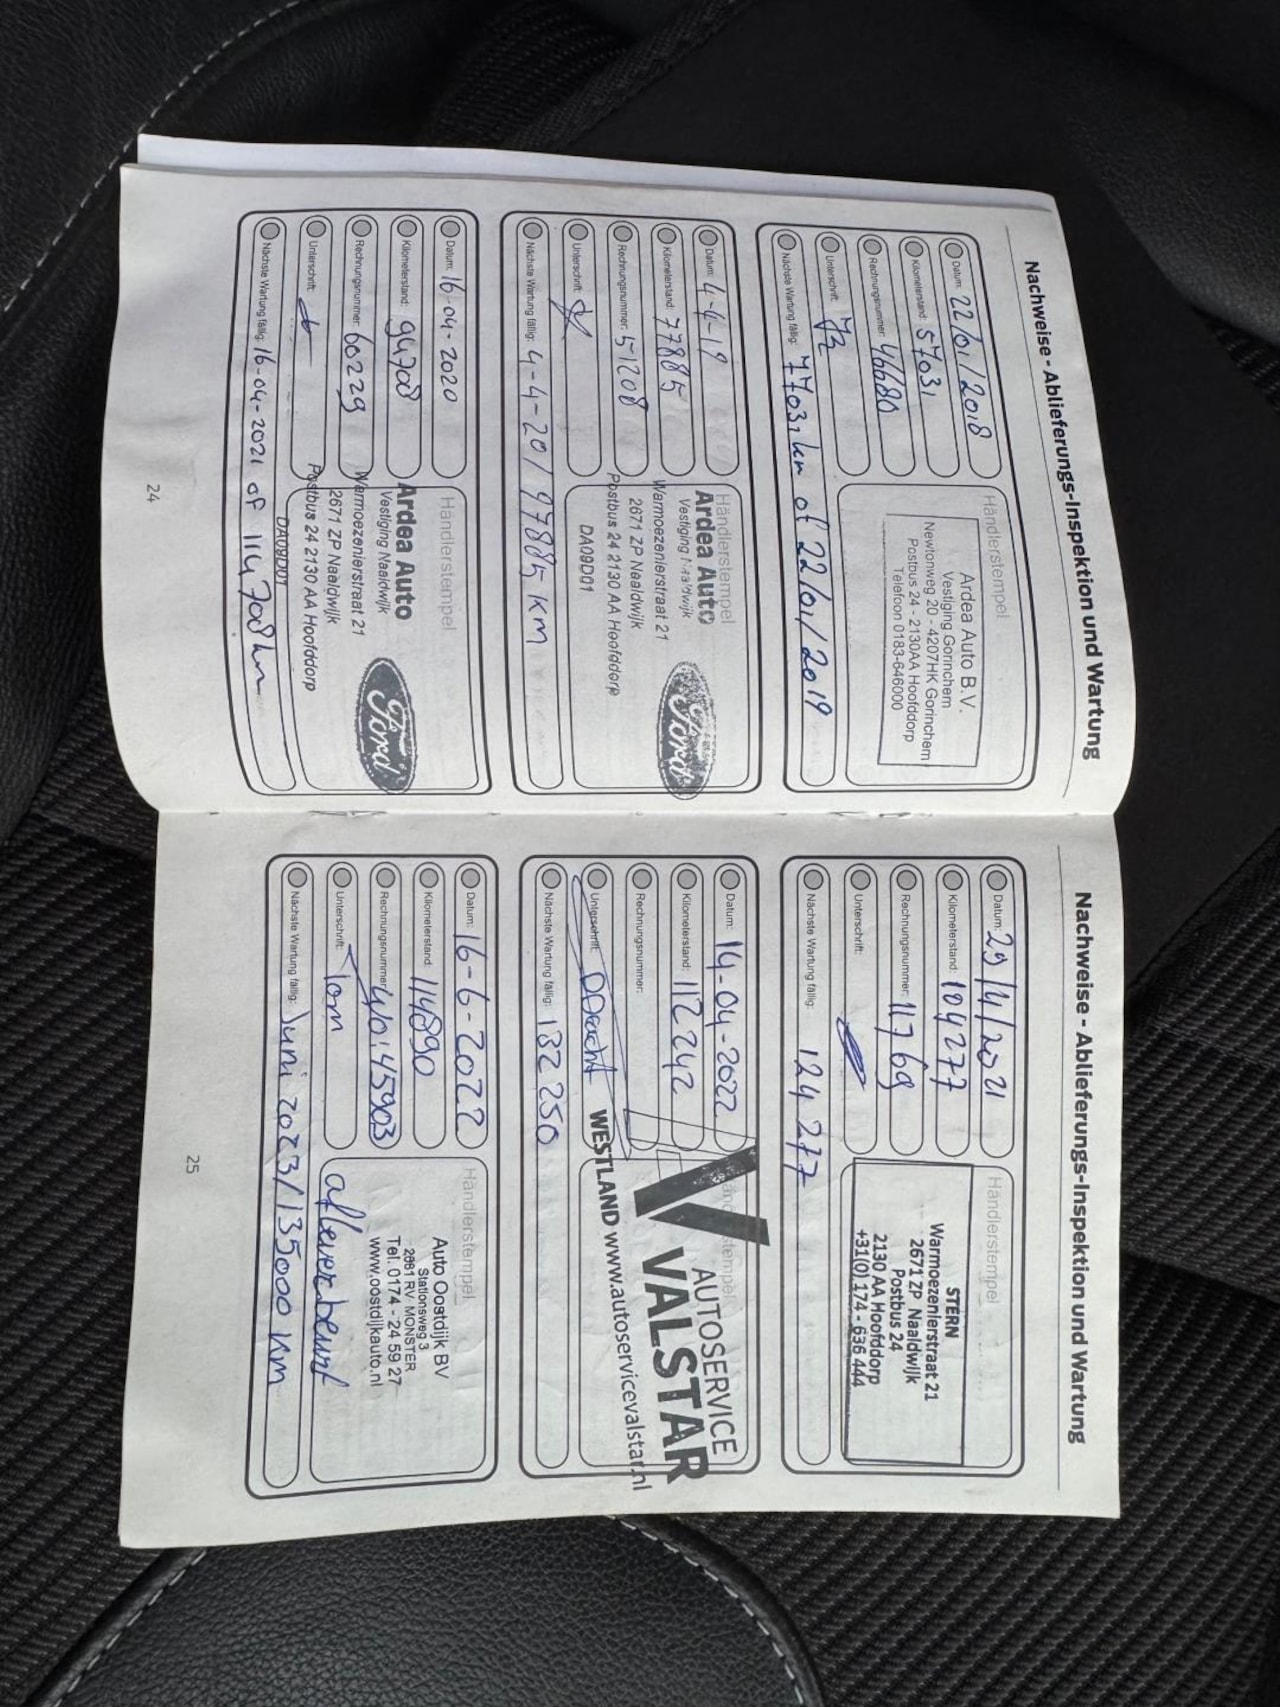 Nachweise - Ablieferungs-Inspektion und Wartung
Datum: 22/01/2018
Kilometerstand: 57031
Rechnungsnummer: 46680
Unterschrift:
Nächste Wartung fällig: 77031 km of 22/01/2019
Händlerstempel
Ardea Auto B.V.
Vestiging Gorinchem
Newtonweg 20 - 4207HK Gorinchem
Postbus 24 - 2130AA Hoofddorp
Telefoon 0183-646000
Datum: 4-4-19
Kilometerstand: 77885
Rechnungsnummer: 51208
Unterschrift:
Nächste Wartung fällig: 4-4-20 / 97885 KM
Händlerstempel
Ardea Auto
Vestiging Naaldwijk
Warmoezenierstraat 21
2671 ZP Naaldwijk
Postbus 24 2130 AA Hoofddorp
DA09D01
Ford
Datum: 16-04-2020
Kilometerstand: 94708
Rechnungsnummer: 60229
Unterschrift:
Nächste Wartung fällig: 16-04-2021 of 114708 km
Händlerstempel
Ardea Auto
Vestiging Naaldwijk
Warmoezenierstraat 21
2671 ZP Naaldwijk
Postbus 24 2130 AA Hoofddorp
DA09D01
Ford
24
Nachweise - Ablieferungs-Inspektion und Wartung
Datum: 29/4/2021
Kilometerstand: 104277
Rechnungsnummer: 11769
Unterschrift:
Nächste Wartung fällig: 124 277
Händlerstempel
STERN
Warmoezenierstraat 21
2671 ZP Naaldwijk
Postbus 24
2130 AA Hoofddorp
+31(0) 174 - 636 444
Datum: 14-04-2022
Kilometerstand: 112242
Rechnungsnummer:
Unterschrift:
Nächste Wartung fällig: 132 250
Händlerstempel
AUTOSERVICE
VALSTAR
WESTLAND www.autoservicevalstar.nl
Datum: 16-6-2022
Kilometerstand: 114890
Rechnungsnummer: 40145903
Unterschrift: Tom
Nächste Wartung fällig: Juni 2023/135000 km
Händlerstempel
Auto Oostdijk BV
Stationsweg 3
2681 RV MONSTER
Tel. 0174 - 24 59 27
www.oostdijkauto.nl
afleverbeurt
25